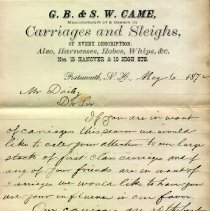 G. B. & S. W. CAME,
Manufacturers of & Dealers in
Carriages and Sleighs,
OF EVERY DESCRIPTION.
Also, Harnesses, Robes, Whips, &c.
Nos. 15 HANOVER & 15 HIGH STS.
Portsmouth, N. H., May 6 187
Mr Daily,
Dr Sir
If you are in want
of carriages this season we would
like to call your attention to our large
stock of first class carriages and if
any of your friends are in want of
carriages we would like to have you
use your influence in our favor.
Our carriages are all